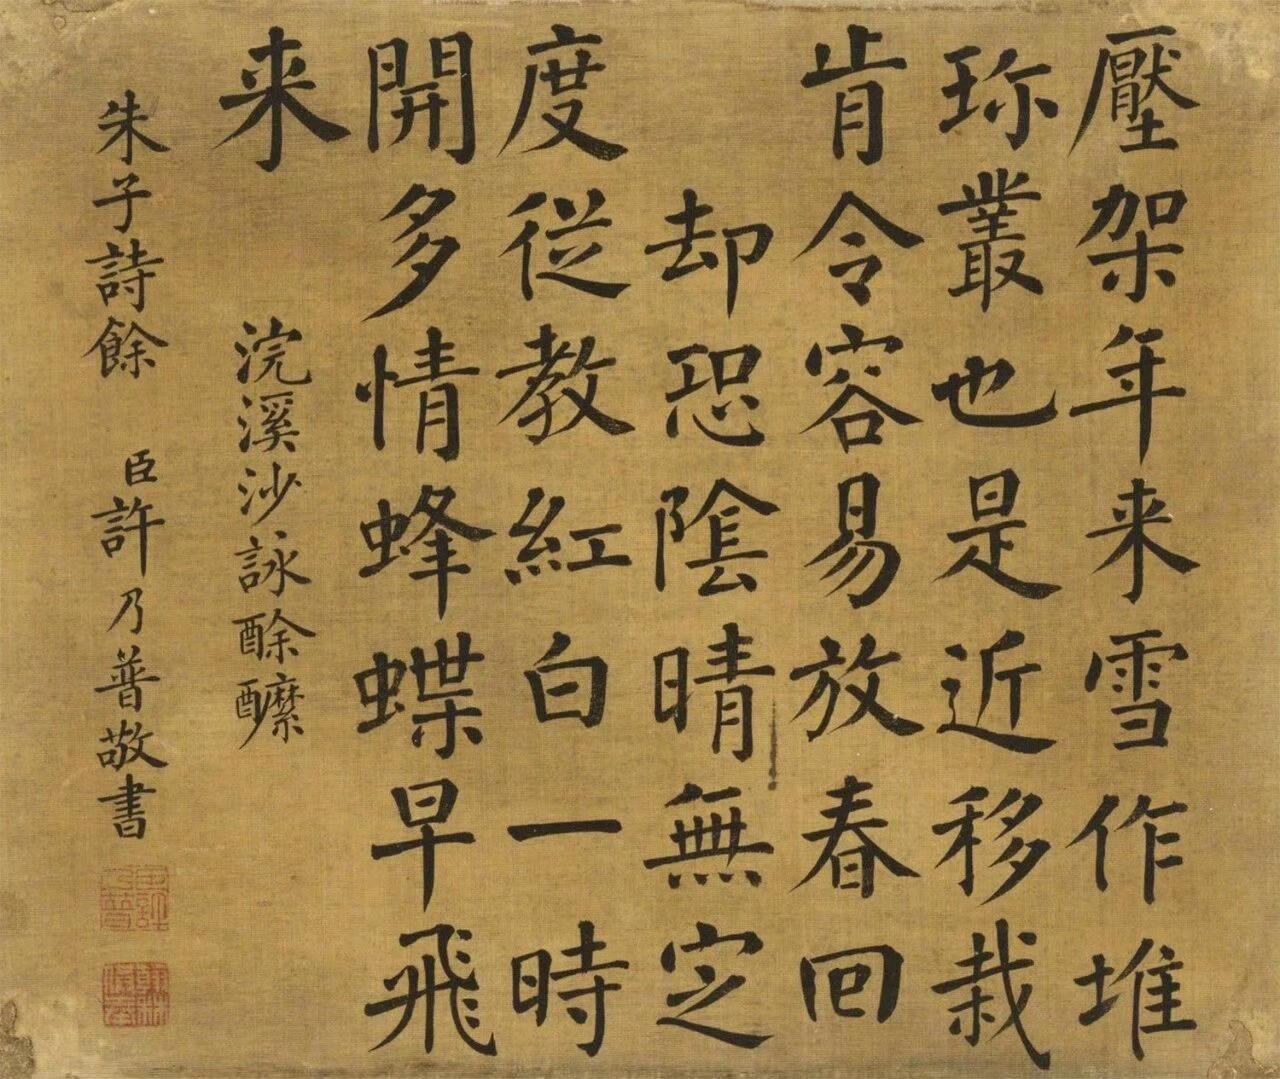 壓架年来雪作堆
珎叢也是近移栽
肯令容易放春回
却恐陰晴無定
度從教紅白一時
開多情蜂蝶早飛
来
浣溪沙詠酴醿
朱子詩餘 臣許乃普敬書